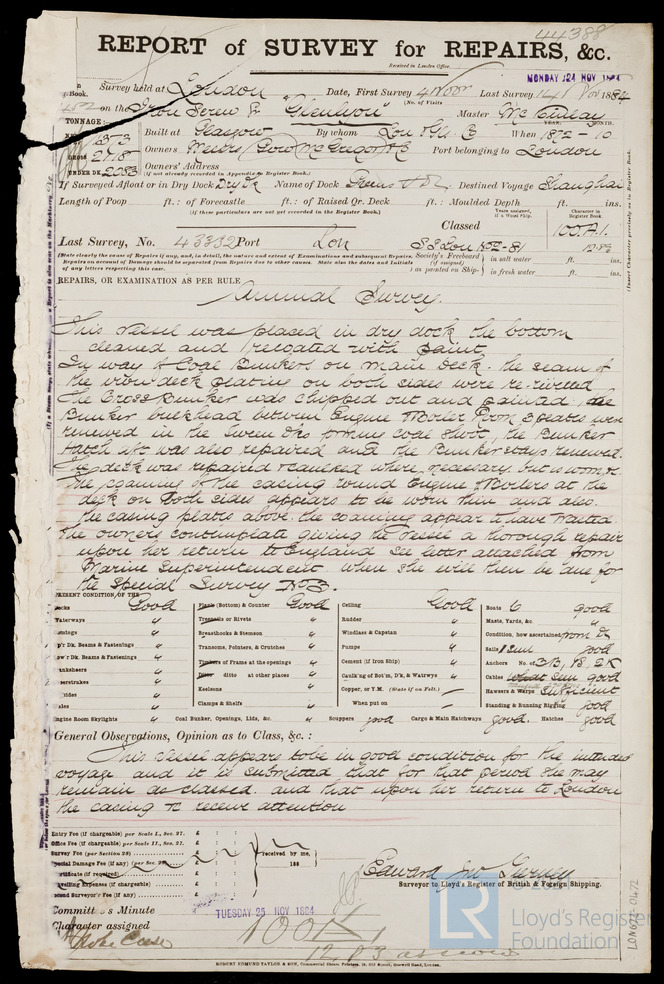 44388
REPORT of SURVEY for REPAIRS, &c.
Received in London Office
MONDAY 24 NOV 1884
Survey held at London Date, First Survey 4 Novr Last Survey 14 Nov 1884
Book. (No. of Visits
on the Iron Screw Sr "Glenlyon" Master
TONNAGE: YEAR. MONTH.
1373 Built at Glasgow By whom Lon & Gla. C When 1872-10
GROSS 2118 Owners McGregor Port belonging to London
UNDER DK 2053 Owners' Address
(if not already recorded in Appendix to Register Book.)
If Surveyed Afloat or in Dry Dock Dry Dk Name of Dock Greens Destined Voyage Shanghai
Length of Poop ft.: of Forecastle ft.: of Raised Qr. Deck ft.: Moulded Depth ft. ins.
(If these particulars are not yet recorded in the Register Book.)
Years assigned, if a Wood Ship. Character in Register Book.
Classed 100A1.
Last Survey, No. 43332 Port Lon SS Lon No2-81 12.83
(State clearly the cause of Repairs if any, and, in detail, the nature and extent of Examinations and subsequent Repairs. Society's Freeboard in salt water ft. ins.
Repairs on account of Damage should be separated from Repairs due to other causes. State also the dates and initials (if assigned)
of any letters respecting this case.) as painted on Ship in fresh water ft. ins.
REPAIRS, OR EXAMINATION AS PER RULE
Annual Survey.
This vessel was placed in dry dock the bottom
cleaned and recoated with paint
In way of Coal Bunkers on main deck the seam of
the iron deck plating on both sides were re-riveted
the Cross Bunker was chipped out and painted, the
Bunker bulkhead between Engine & Boiler Room 3 plates were
renewed in the tween dks forming coal shoot, the Bunker
hatch aft was also repaired and the Bunker stays renewed.
The deck was repaired & caulked where necessary. but is worn &c.
The coaming of the casing round Engine & Boilers at the
deck on both sides appears to be worn thin and also
the casing plates above the coaming appear to have wasted.
The owners contemplate giving the vessel a thorough repair
upon her return to England see letter attached from
Marine Superintendent when she will then be due for
the Special Survey No 3.
PRESENT CONDITION OF THE
Decks Good Plank (Bottom) & Counter Good Ceiling Good Boats 6 good
Waterways " Treenails or Rivets " Rudder " Masts, Yards, &c. "
" Breasthooks & Stemson " Windlass & Capstan " Condition, how ascertained from Dk
Up'r Dk. Beams & Fastenings " Transoms, Pointers, & Crutches " Pumps " Sails 1 Suit good
Low'r Dk. Beams & Fastenings " Timbers of Frame at the openings " Cement (if Iron Ship) " Anchors No. of 3B, 1S, 2K
" Ditto ditto at other places " Caulking of Bot'm, D'ks, & Watrwys " Cables good
" Keelsons " Copper, or Y.M. (State if on Felt.) Hawsers & Warps Sufficient
" Clamps & Shelfs " When put on Standing & Running Rigging good
Engine Room Skylights " Coal Bunker, Openings, Lids, &c. " Scuppers good Cargo & Main Hatchways good. Hatches good
General Observations, Opinion as to Class, &c. :
This vessel appears to be in good condition for the intended
voyage and it is submitted that for that period she may
remain as classed. and that upon her return to London
the casing &c receive attention
Entry Fee (if chargeable) per Scale I., Sec. 27. £ : :
Office Fee (if chargeable) per Scale II., Sec. 27. £ : :
Survey Fee (per Section 28) £ : : received by me,
Special Damage Fee (if any) (per Sec. 28) £ : : 188
Certificate (if required) £ : :
Travelling Expenses (if chargeable) £ : :
Second Surveyor's Fee (if any) £ : :
Edward Jno
Surveyor to Lloyd's Register of British & Foreign Shipping.
Committee's Minute TUESDAY 25 NOV 1884
Character assigned 100A1
12.83 as
ROBERT EDMUND TAYLOR & SON, Commercial Steam Printers, 19, Old Street, Goswell Road, London.
LR
Lloyd's Register
Foundation
LON677-0472